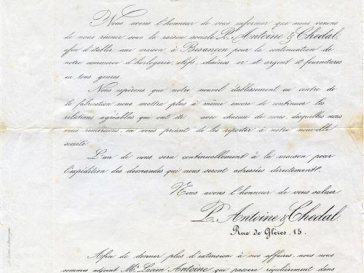 Nous avons l'honneur de vous informer que nous venons
de nous réunir sous la raison sociale P. Antoine & Chedal,
afin d'établir une maison à Besançon pour la continuation de
notre commerce d'horlogerie, clefs, chaînes or et argent et fournitures
en tous genres.
Nous espérons que notre nouvel établissement au centre de
la fabrication nous mettra plus à même encore de continuer les
relations agréables que ont été avec chacun de vous, desquelles nous
vous remercions, en vous priant de les reporter à notre nouvelle
société.
L'un de nous sera continuellement à la maison pour
l'expédition des demandes que nous seront adressées directement.
Nous avons l'honneur de vous saluer
P. Antoine & Chedal
Rue de Glères, 15.
Afin de donner plus d'extension à nos affaires, nous nous
sommes adjoint Mr. Lucien Antoine que passera régulièrement dans